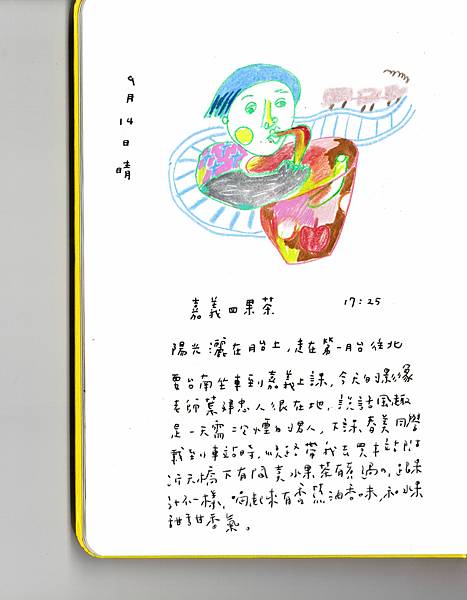 9月14日晴
嘉義四果茶 17:25
陽光灑在月台上,走在第一月台往北
要台南坐車到嘉義上課,今天的影像
老師蔡建忠人很在地,談話風趣
是一天需二次煙的男人,下課,春美同學
載我到車站時,以路帶我去買
天橋下有間賣水果茶有賣過的,跟果
汁不一樣,喝起來有香蕉油香味,和水果
甜甜香氣。